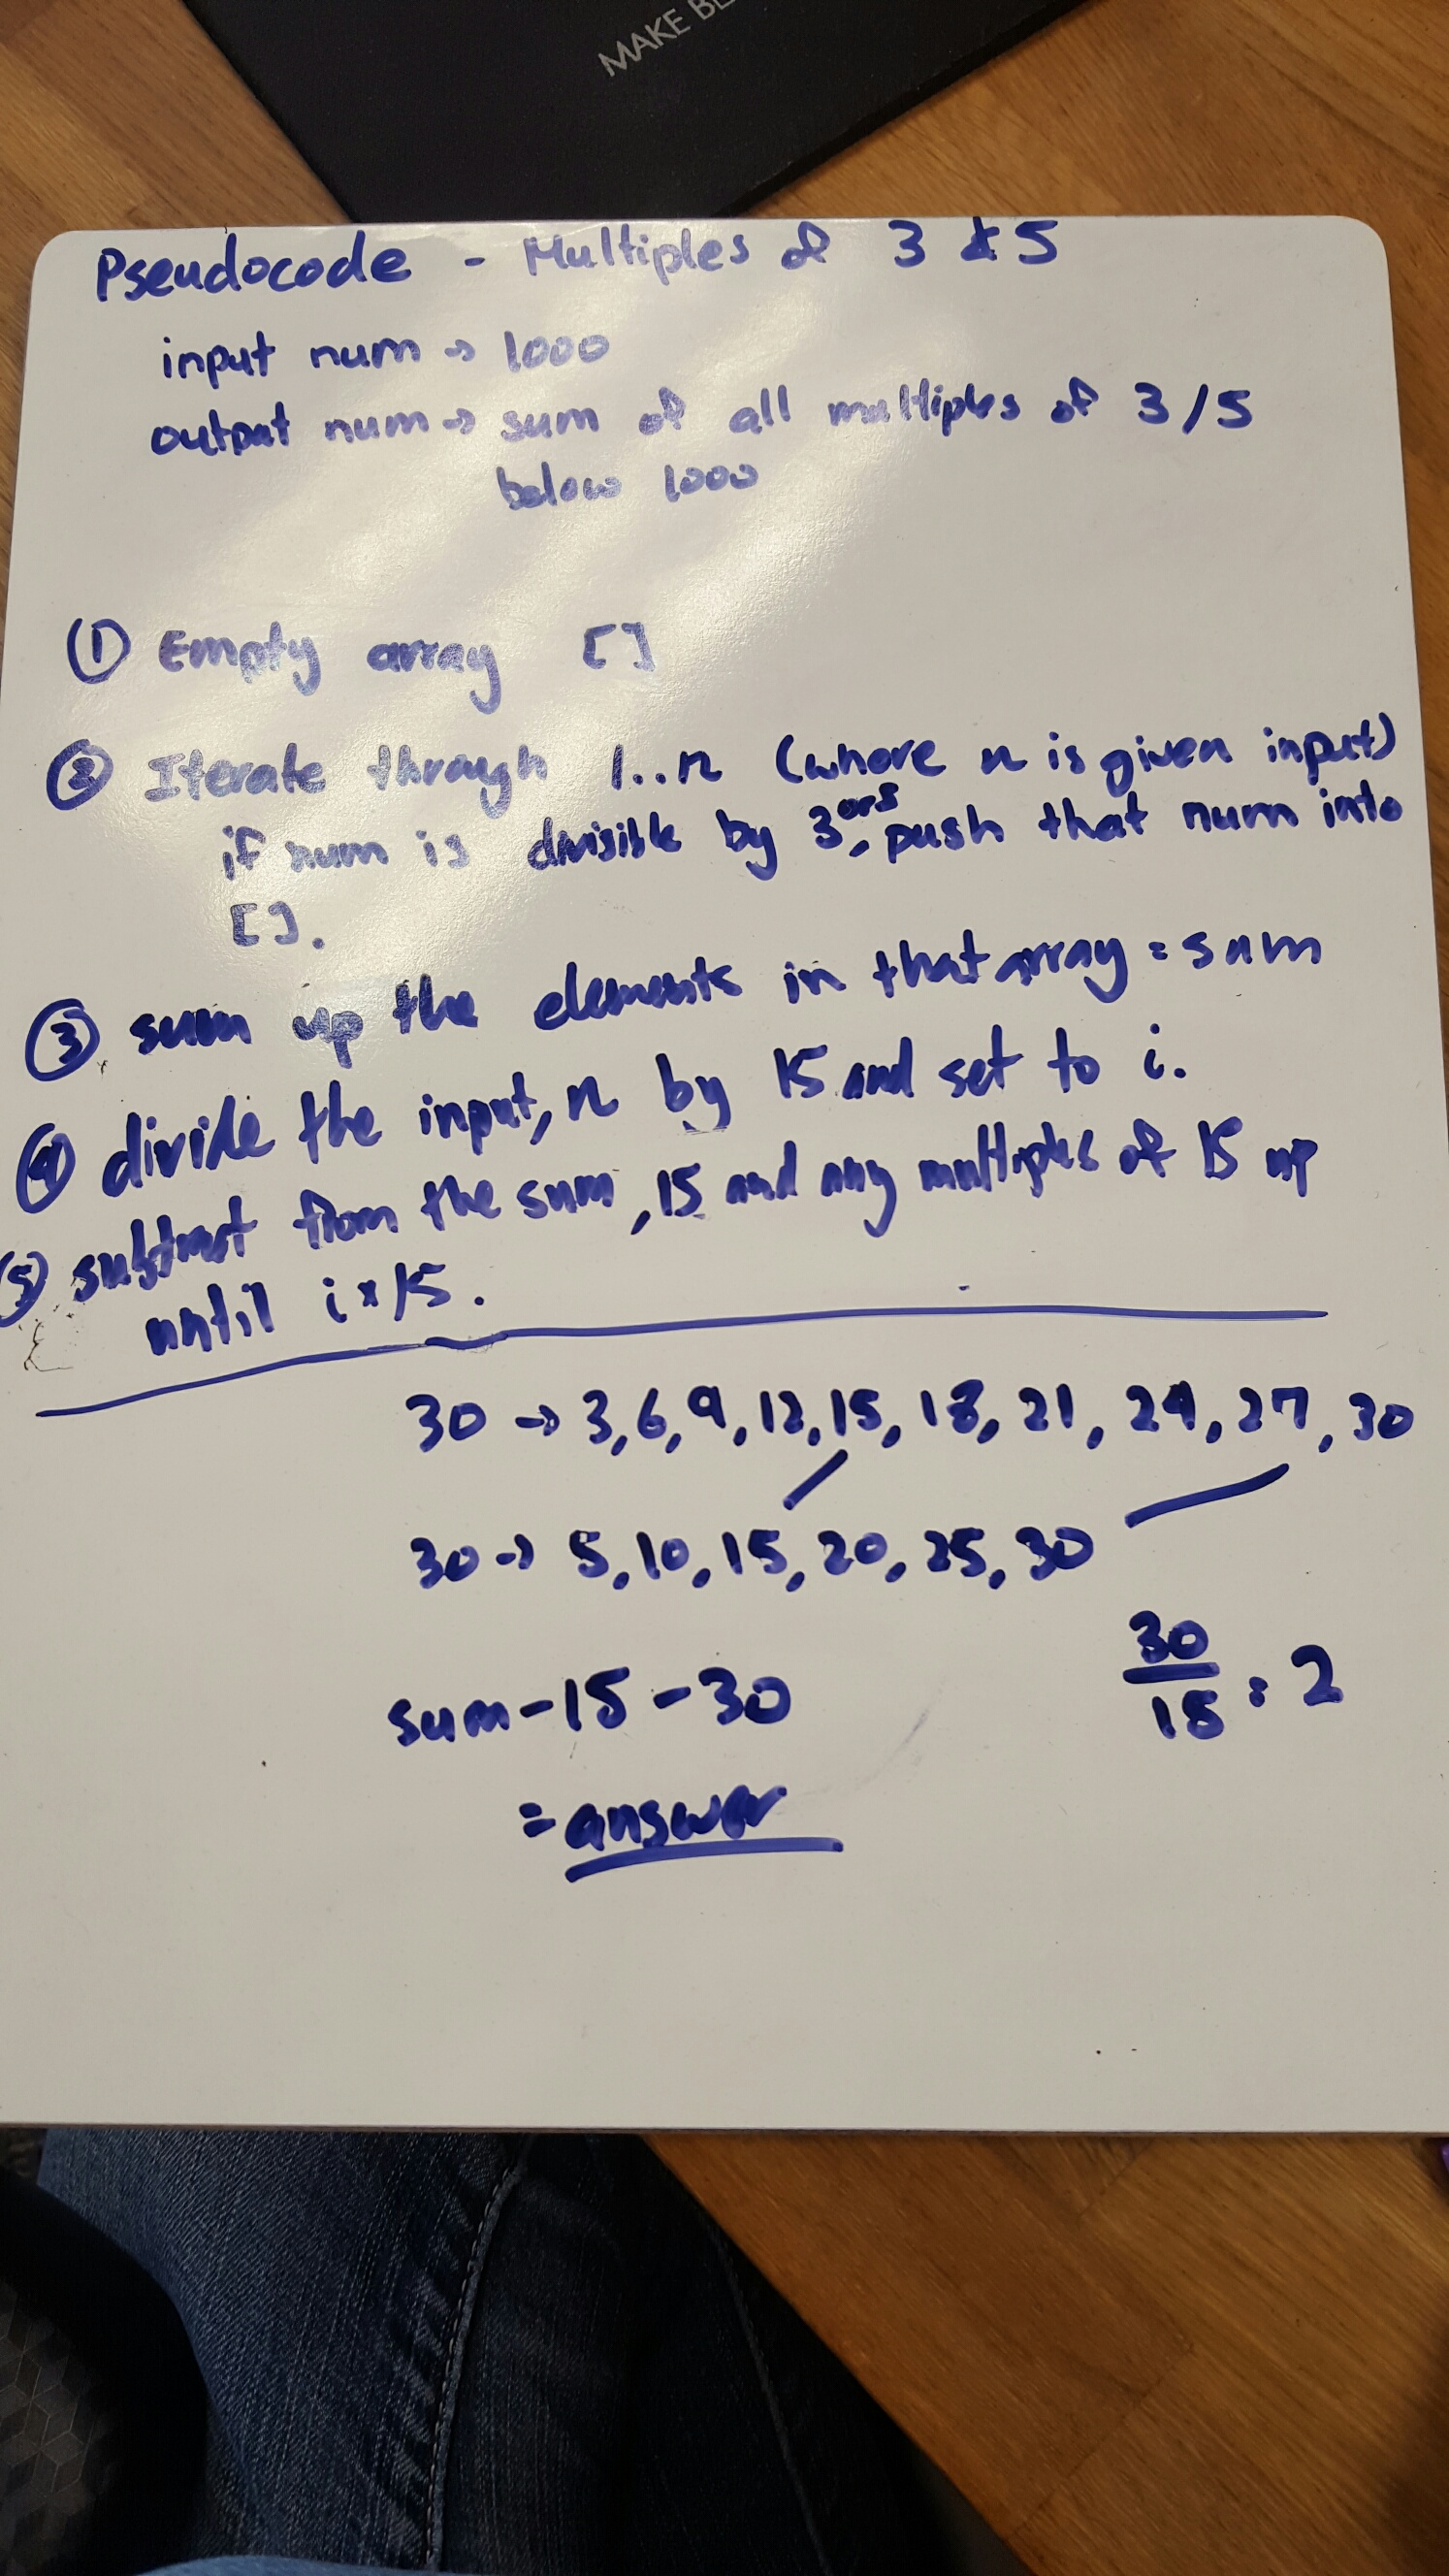 MAKE BE
Pseudocode - Multiples of 3 & 5
input num → 1000
output num → sum of all multiples of 3/5
below 1000
① Empty array []
② Iterate through 1..n (where n is given input)
if num is divisible by 3 or 5, push that num into
[].
③ sum up the elements in that array = sum
④ divide the input, n by 15 and set to i.
⑤ subtract from the sum, 15 and any multiples of 15 up
until i * 15.
30 → 3, 6, 9, 12, 15, 18, 21, 24, 27, 30
30 → 5, 10, 15, 20, 25, 30
30
15 = 2
sum - 15 - 30
= answer